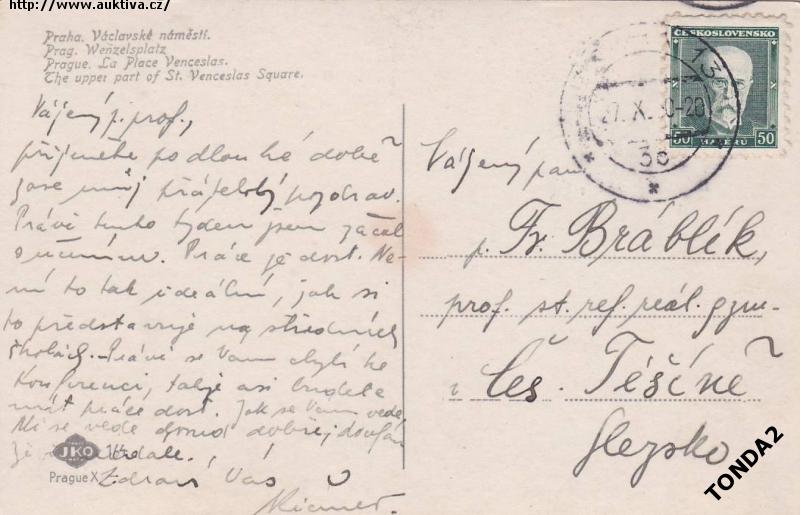 http://www.auktiva.cz/
Praha. Václavské náměstí.
Prag. Wenzelsplatz
Prague. La Place Venceslas.
The upper part of St. Venceslas Square.
ČESKOSLOVENSKO
50 HALÉŘŮ 50
27. X. 0-20
Vážený p. prof.,
přijměte po dlouhé době
zase můj přátelský pozdrav.
Právě tento týden jsem začal
s učením. Práce je dost. Ne-
ní to tak ideální, jak si
to představuje na středních
školách. Právě se Vám chýlí ke
konferenci, takže asi budete
mít práce dost. Jak se Vám vede.
Mi se vede dobře, doufám
že i
Zdraví Vás
Vážený pan
p. Fr. Bráblík,
prof. st. ref. reál. gym-
v Čes. Těšíně
Slezsko
JKO
Prague X
TONDA2